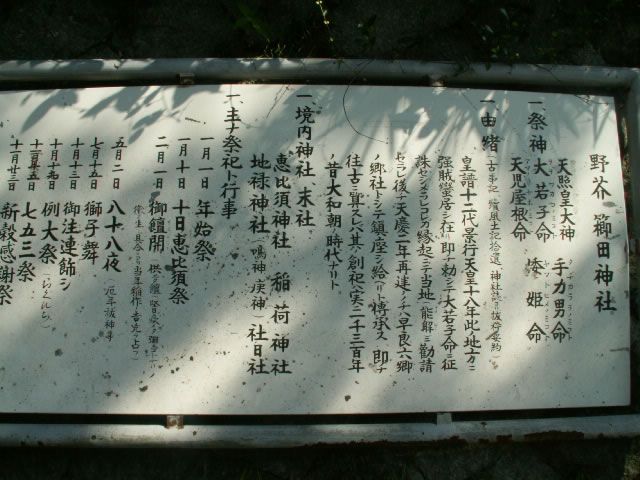 野芥 櫛田神社
一、祭神
天照皇大神 手力男命
大若子命 埃姫命
天児屋根命
一、由緒
皇譜十二代景行天皇十八年此ノ地方ニ
強賊蠻居シ在
即チ勅シテ大若子命ニ征
誅セシメラレコレガ縁起ニテ当地(能解)ニ勧請
セラレ後チ天慶二年再建シノチハ早良六郷
ノ郷社トシテ鎮座シ給ヘリト博承ス 即チ
往古ニ算スレバ其ノ創祀ハ実ニ二千三百年
ノ昔大和朝時代ナリト
一、境内神社 末社
恵比須神社 稲荷神社
地禄神社 (鳴神 戻神) 社日社
一、主ナ祭祀ト行事
一月一日 年始祭
一月十日 十日恵比須祭
二月一日 御饘開
五月二日 八十八夜 (厄年祓神事
七月十五日 獅子舞
十月十三日 御注連飾シ
十月十九日 例大祭
十一月十五日 七五三祭
十一月廿三日 新穀感謝祭